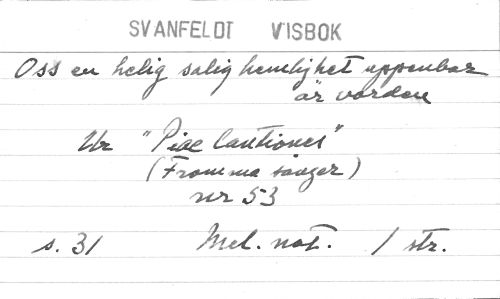 SVANFELDT VISBOK
Oss en helig salig hemlighet uppenbar
är vorden
Ur "Piae Cantiones"
(Fromma sånger)
nr 53
s. 31 Mel. not. 1 str.